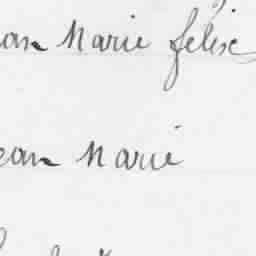 ean Marie felise
ean Marie